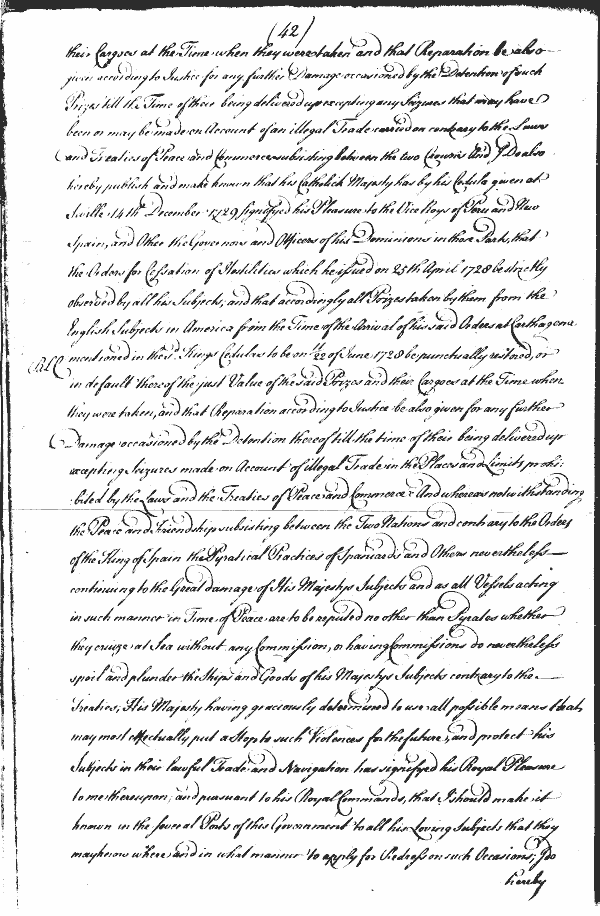 (42)
their Cargoes at the Time when they were taken and that Reparation be also
given according to Justice for any further Damage occasioned by the Detention of such
Prizes till the Time of their being delivered up excepting any Seizures that may have
been or may be made on Account of an illegal Trade carried on contrary to the Laws
and Treaties of Peace and Commerce subsisting between the two Crowns And I Do also
hereby publish and make known that his Catholick Majesty has by his Cedula given at
Siville 14th December 1729 signifyed his Pleasure to the Vice Roys of Peru and New
Spain, and Other the Governors and Officers of his Dominions in those Parts, that
the Orders for Cessation of Hostilities which he issued on 25th April 1728 be strictly
observed by all his Subjects, and that accordingly all Prizes taken by them from the
English Subjects in America from the Time of the Arrival of his said Orders at Carthagena
mentioned in the sd. Kings Cedulas to be on 11/22 of June 1728 be punctually restored, or
in default thereof the just Value of the said Prizes and their Cargoes at the Time when
they were taken, and that Reparation according to Justice be also given for any further
Damage occasioned by the Detention thereof till the time of their being delivered up
excepting Seizures made on Account of illegal Trade in the Places and Limits prohi-
bited by the Laws and the Treaties of Peace and Commerce And whereas notwithstanding
the Peace and Friendship subsisting between the Two Nations and contrary to the Orders
of the King of Spain the Pyratical Practices of Spaniards and Others nevertheless
continuing to the Great damage of His Majestys Subjects and as all Vessels acting
in such manner in Time of Peace are to be reputed no other than Pyrates whether
they cruize at Sea without any Commission, or having Commissions do nevertheless
spoil and plunder the Ships and Goods of his Majestys Subjects contrary to the
Treaties, His Majesty having graciously determined to use all possible means that
may most effectually put a Stop to such Violences for the future, and protect his
Subjects in their lawful Trade and Navigation has signifyed his Royal Pleasure
to me thereupon, and pursuant to his Royal Commands, that I should make it
known in the several Ports of this Government to all his Loving Subjects that they
may know where and in what manner to apply for Redress on such Occasions, I do
hereby